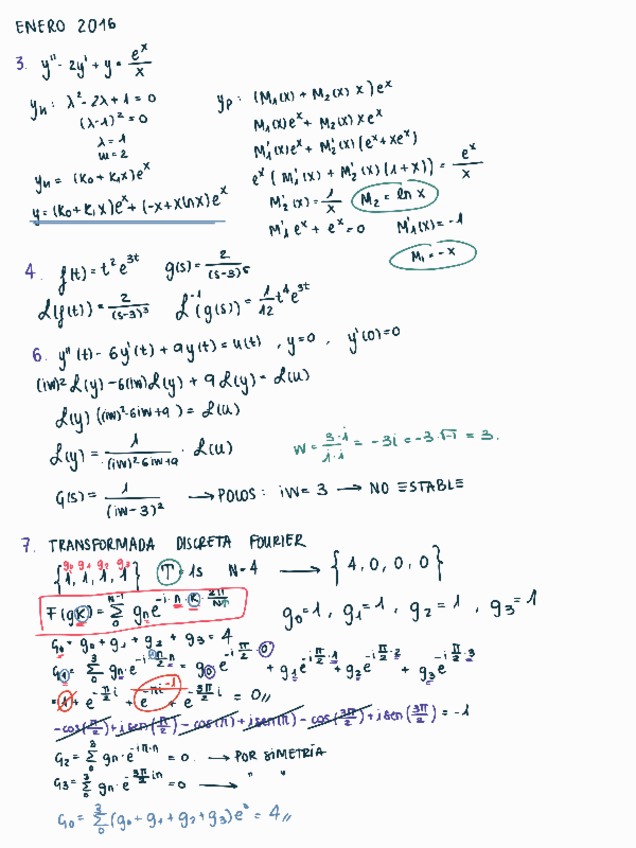 ENERO 2016
3. y'' - 2y' + y = e^x/x
y_H: λ² - 2λ + 1 = 0
(λ-1)² = 0
λ = 1
m = 2
y_H = (K0 + K1x)e^x
y = (K0 + K1x)e^x + (-x + x ln x)e^x
y_P: (M1(x) + M2(x) x)e^x
M1(x)e^x + M2(x) x e^x
M1'(x)e^x + M2'(x)(e^x + xe^x)
e^x (M1'(x) + M2'(x)(1+x)) = e^x/x
M2'(x) = 1/x M2 = ln x
M1' e^x + e^x = 0 M1'(x) = -1
M1 = -x
4. f(t) = t² e^3t g(s) = 2/(s-3)^5
L(f(t)) = 2/(s-3)³ L^-1(g(s)) = 1/12 t⁴ e^3t
6. y''(t) - 6y'(t) + 9y(t) = u(t) , y=0 , y'(0)=0
(iw)² L(y) - 6(iw)L(y) + 9 L(y) = L(u)
L(y) ((iw)² - 6iw + 9) = L(u)
L(y) = 1/((iw)² - 6iw + 9) · L(u)
w = 3·i/i·i = -3i = -3·√-1 = 3.
G(s) = 1/(iw-3)² → POLOS: iw = 3 → NO ESTABLE
7. TRANSFORMADA DISCRETA FOURIER
g0 g1 g2 g3
{1, 1, 1, 1} T = 1s N=4 → {4, 0, 0, 0}
F(gK) = Σ_0^(N-1) gn e^(-i·n·K·2π/NT)
g0=1, g1=1, g2=1, g3=1
G0 = g0 + g1 + g2 + g3 = 4
G1 = Σ_0^3 gn·e^(-i π/2 n) = g0 e^(-i π/2·0) + g1 e^(-i π/2·1) + g2 e^(-i π/2·2) + g3 e^(-i π/2·3)
= 1 + e^(-π/2 i) + e^(-πi) -1 + e^(-3π/2 i) = 0//
-cos(π/2) + i sen(π/2) - cos(π) + i sen(π) - cos(3π/2) + i sen(3π/2) = -1
G2 = Σ_0^3 gn·e^(-iπ·n) = 0. → POR SIMETRÍA
G3 = Σ_0^3 gn·e^(-3π/2 in) = 0 → " "
G0 = Σ_0^3 (g0 + g1 + g2 + g3)e^0 = 4//